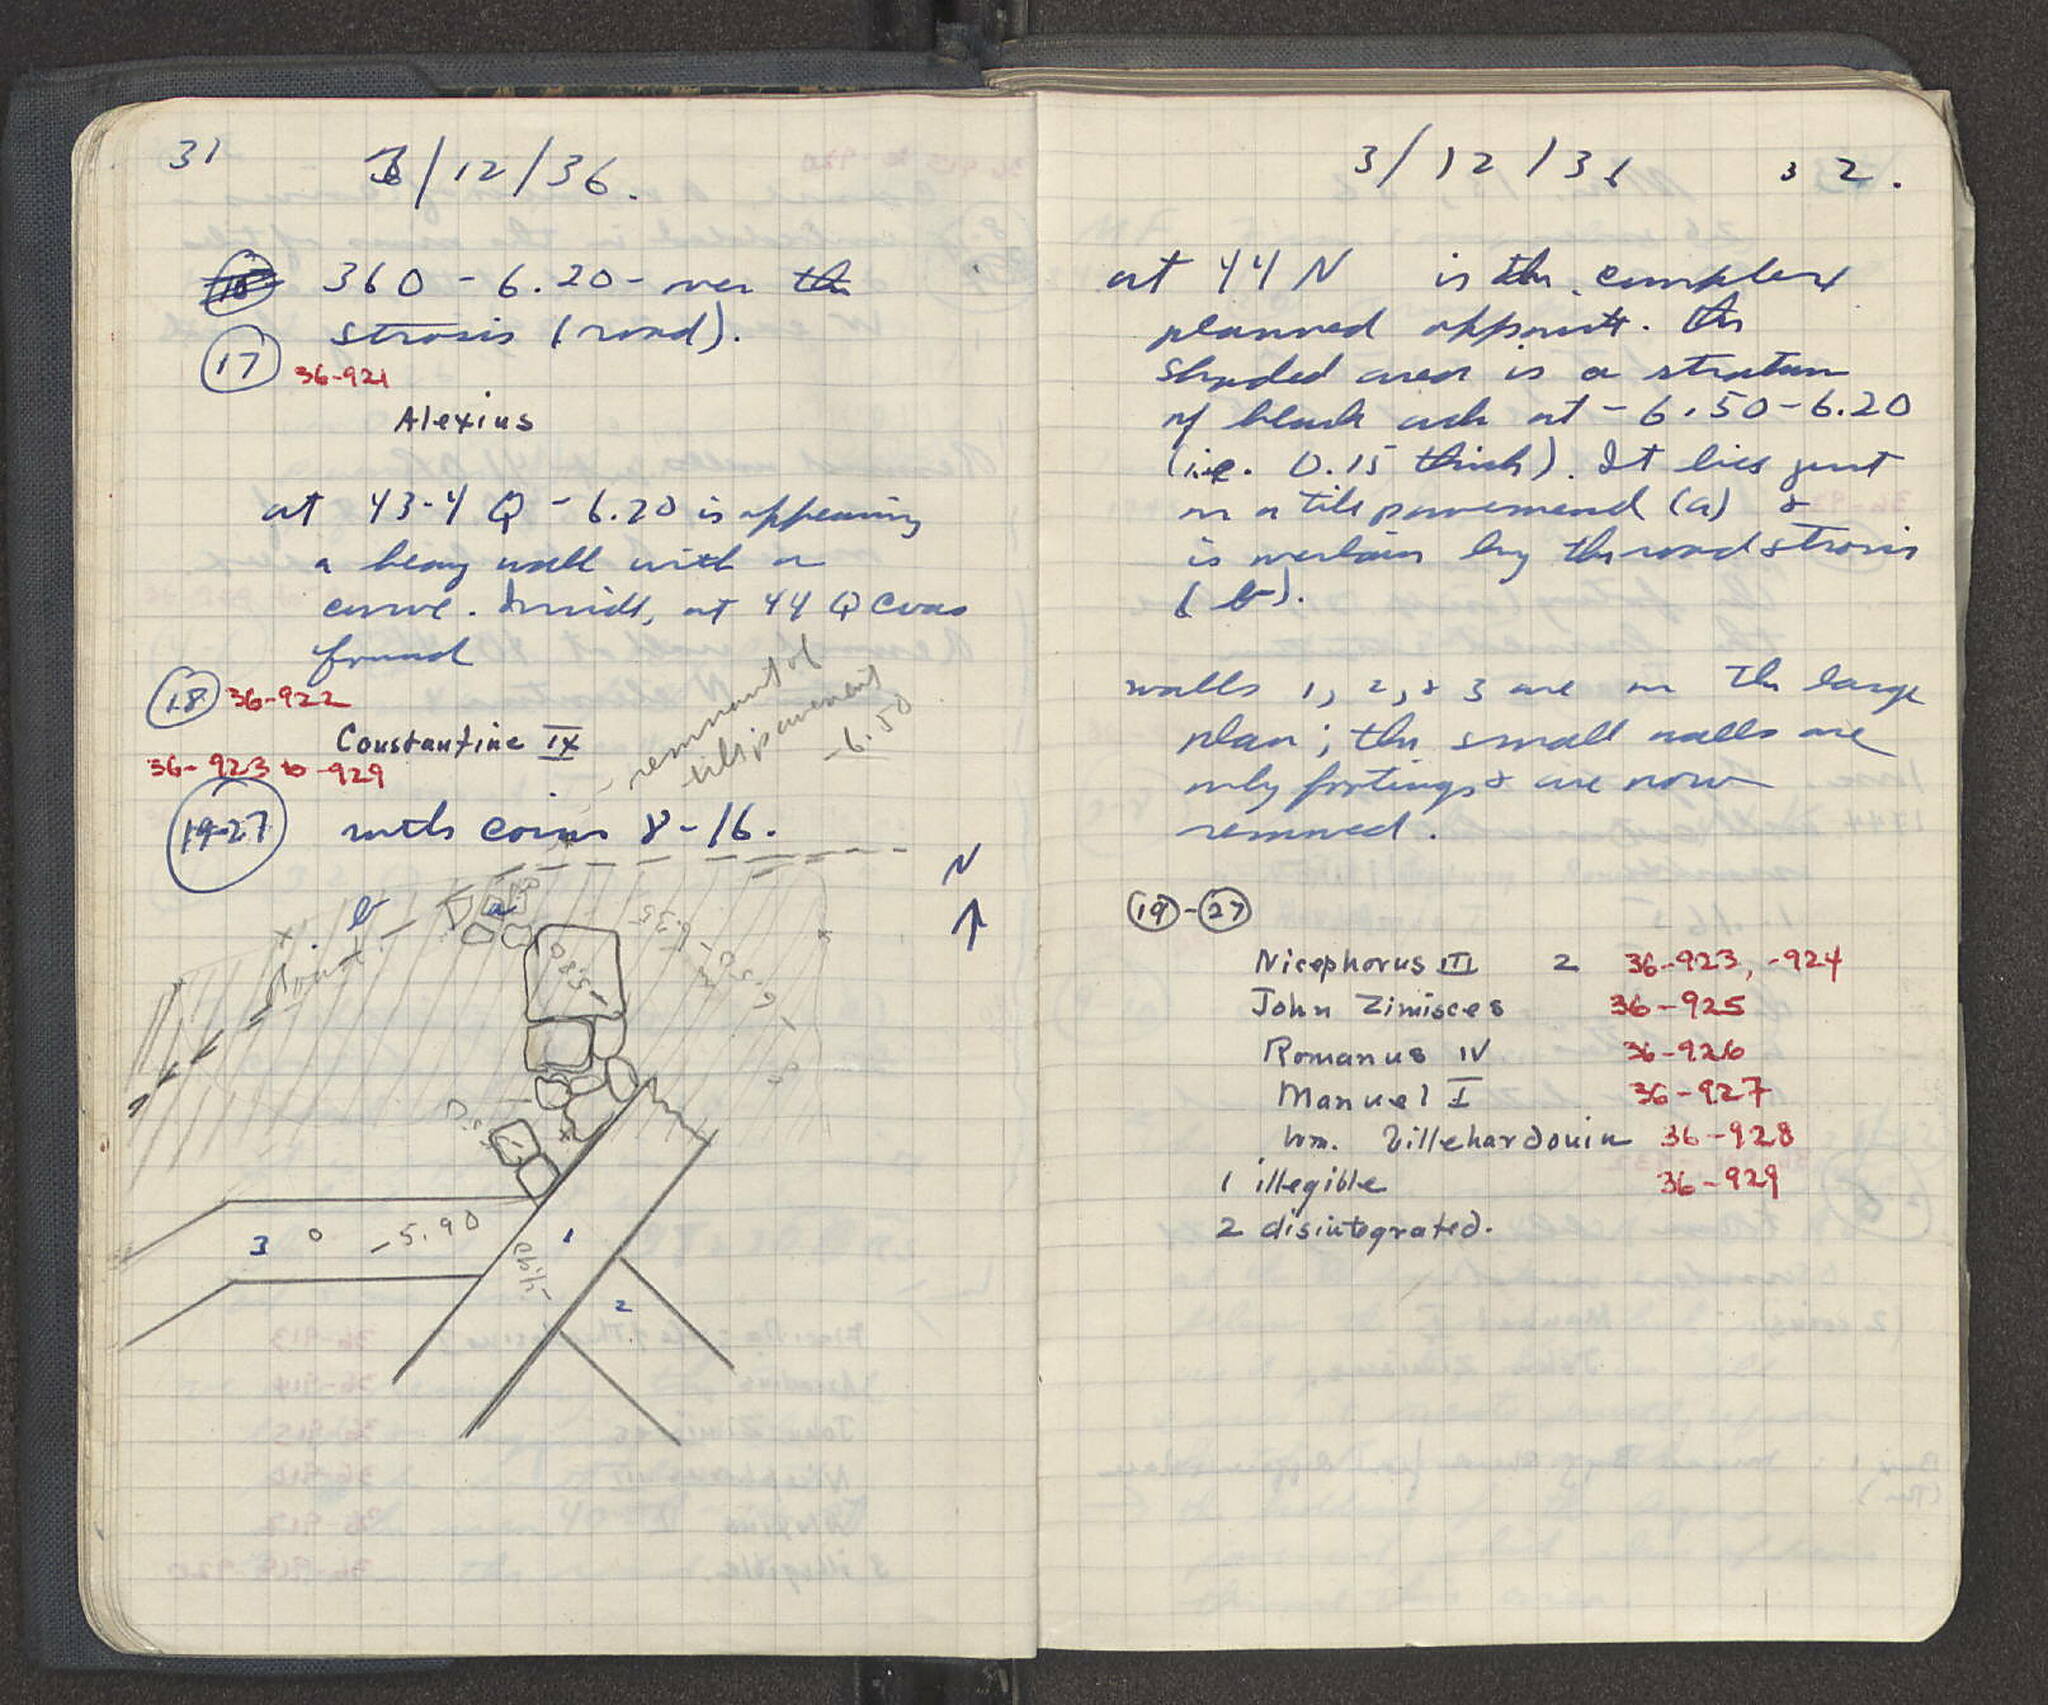 31
3/12/36.
360 - 6.20 - over the
strosis (road).
17
36-921
Alexius
at 43-4 Q - 6.20 is appearing
a heavy wall with a
curve. Inside, at 44 Q was
found
18 36-922
Constantine IX
36-923 to -929
19-27 with coins 8-16.
remnant of
tile pavement
-6.50
N
b
a
-5.80
3 -5.90
1
2
3/12/36 32.
at 44 N is the complex
planned opposite. The
shaded area is a stratum
of black ash at -6.50-6.20
(i.e. 0.15 thick). It lies just
on a tile pavemend (a) &
is overlain by the road strosis
(b).
walls 1, 2, & 3 are on the large
plan; the small walls are
only footings & are now
removed.
19-27
Nicephorus III 2 36-923, -924
John Zimisces 36-925
Romanus IV 36-926
Manuel I 36-927
Wm. Villehardouin 36-928
1 illegible 36-929
2 disintegrated.